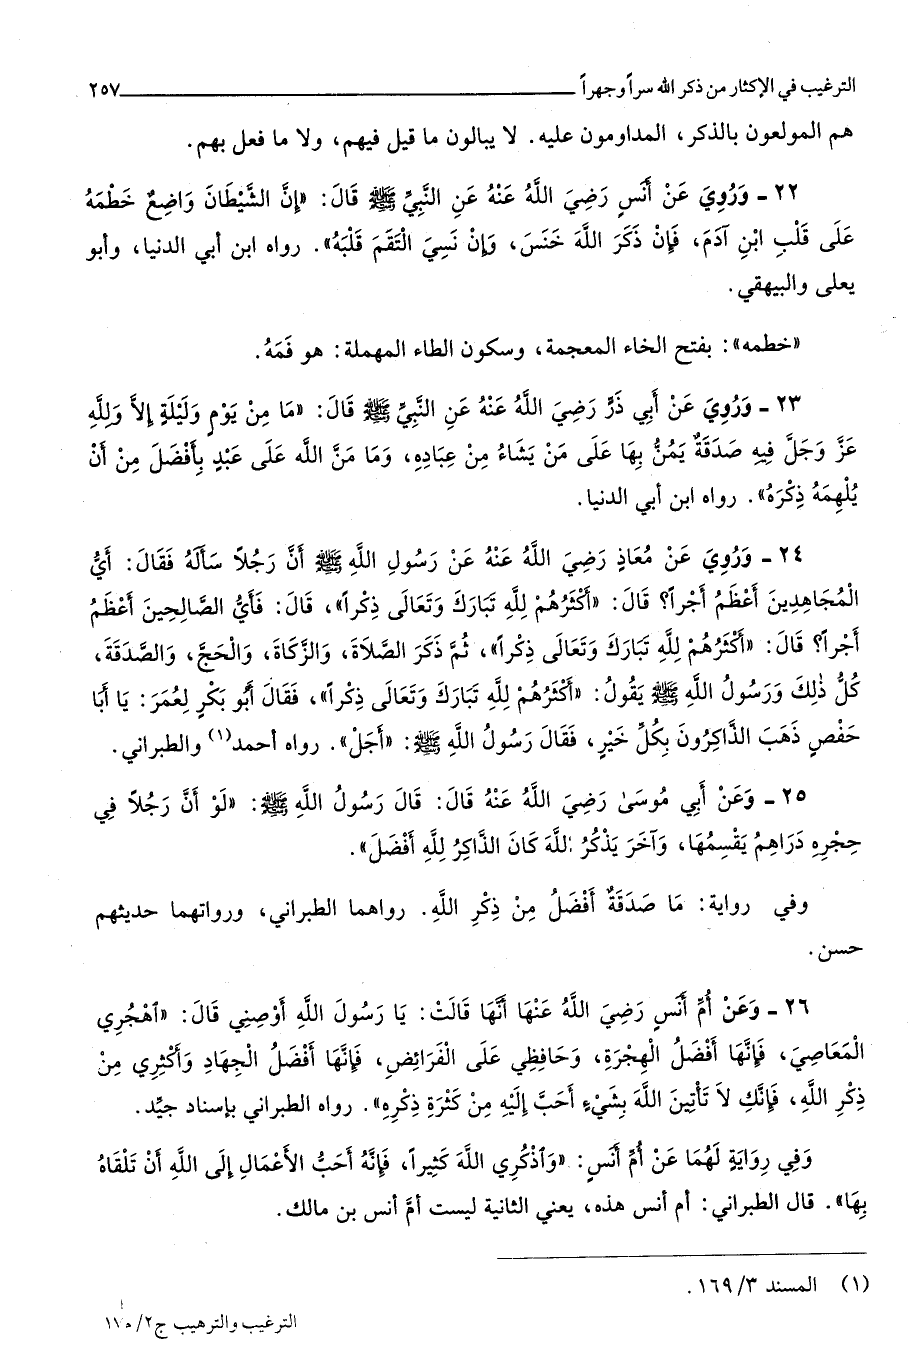 الترغيب في الإكثار من ذكر الله سراً وجهراً ــــــــ ٢٥٧
هم المولعون بالذكر، المداومون عليه. لا يبالون ما قيل فيهم، ولا ما فعل بهم.
٢٢ ـ وَرُوِيَ عَنْ أَنَسٍ رَضِيَ اللَّهُ عَنْهُ عَنِ النَّبِيِّ ﷺ قَالَ: «إِنَّ الشَّيْطَانَ وَاضِعٌ خَطْمَهُ
عَلَى قَلْبِ ابْنِ آدَمَ، فَإِنْ ذَكَرَ اللَّهَ خَنَسَ، وَإِنْ نَسِيَ الْتَقَمَ قَلْبَهُ». رواه ابن أبي الدنيا، وأبو
يعلى والبيهقي.
«خطمه»: بفتح الخاء المعجمة، وسكون الطاء المهملة: هو فَمَهُ.
٢٣ ـ وَرُوِيَ عَنْ أَبِي ذَرٍّ رَضِيَ اللَّهُ عَنْهُ عَنِ النَّبِيِّ ﷺ قَالَ: «مَا مِنْ يَوْمٍ وَلَيْلَةٍ إِلاَّ وَلِلَّهِ
عَزَّ وَجَلَّ فِيهِ صَدَقَةٌ يَمُنُّ بِهَا عَلَى مَنْ يَشَاءُ مِنْ عِبَادِهِ، وَمَا مَنَّ اللَّه عَلَى عَبْدٍ بِأَفْضَلَ مِنْ أَنْ
يُلْهِمَهُ ذِكْرَهُ». رواه ابن أبي الدنيا.
٢٤ ـ وَرُوِيَ عَنْ مُعَاذٍ رَضِيَ اللَّهُ عَنْهُ عَنْ رَسُولِ اللَّهِ ﷺ أَنَّ رَجُلاً سَأَلَهُ فَقَالَ: أَيُّ
الْمُجَاهِدِينَ أَعْظَمُ أَجْراً؟ قَالَ: «أَكْثَرُهُمْ لِلَّهِ تَبَارَكَ وَتَعَالَى ذِكْراً»، قَالَ: فَأَيُّ الصَّالِحِينَ أَعْظَمُ
أَجْراً؟ قَالَ: «أَكْثَرُهُمْ لِلَّهِ تَبَارَكَ وَتَعَالَى ذِكْراً»، ثُمَّ ذَكَرَ الصَّلاَةَ، وَالزَّكَاةَ، وَالْحَجَّ، وَالصَّدَقَةَ،
كُلُّ ذٰلِكَ وَرَسُولُ اللَّهِ ﷺ يَقُولُ: «أَكْثَرُهُمْ لِلَّهِ تَبَارَكَ وَتَعَالَى ذِكْراً»، فَقَالَ أَبُو بَكْرٍ لِعُمَرَ: يَا أَبَا
حَفْصٍ ذَهَبَ الذَّاكِرُونَ بِكُلِّ خَيْرٍ، فَقَالَ رَسُولُ اللَّهِ ﷺ: «أَجَلْ». رواه أحمد(١) والطبراني.
٢٥ ـ وَعَنْ أَبِي مُوسَىٰ رَضِيَ اللَّهُ عَنْهُ قَالَ: قَالَ رَسُولُ اللَّهِ ﷺ: «لَوْ أَنَّ رَجُلاً فِي
حِجْرِهِ دَرَاهِمُ يَقْسِمُهَا، وَآخَرَ يَذْكُرُ اللَّهَ كَانَ الذَّاكِرُ لِلَّهِ أَفْضَلَ».
وفي رواية: مَا صَدَقَةٌ أَفْضَلُ مِنْ ذِكْرِ اللَّهِ. رواهما الطبراني، ورواتهما حديثهم
حسن.
٢٦ ـ وَعَنْ أُمِّ أَنَسٍ رَضِيَ اللَّهُ عَنْهَا أَنَّهَا قَالَتْ: يَا رَسُولَ اللَّهِ أَوْصِنِي قَالَ: «ٱهْجُرِي
الْمَعَاصِيَ، فَإِنَّهَا أَفْضَلُ الْهِجْرَةِ، وَحَافِظِي عَلَى الْفَرَائِضِ، فَإِنَّهَا أَفْضَلُ الْجِهَادِ وَأَكْثِرِي مِنْ
ذِكْرِ اللَّهِ، فَإِنَّكِ لاَ تَأْتِينَ اللَّهَ بِشَيْءٍ أَحَبَّ إِلَيْهِ مِنْ كَثْرَةِ ذِكْرِهِ». رواه الطبراني بإسناد جيِّد.
وَفِي رِوَايَةٍ لَهُمَا عَنْ أُمِّ أَنَسٍ: «وَٱذْكُرِي اللَّهَ كَثِيراً، فَإِنَّهُ أَحَبُّ الأَعْمَالِ إِلَى اللَّهِ أَنْ تَلْقَاهُ
بِهَا». قال الطبراني: أم أنس هذه، يعني الثانية ليست أمَّ أنس بن مالك.
(١) المسند ٣/ ١٦٩.
الترغيب والترهيب ج٢/